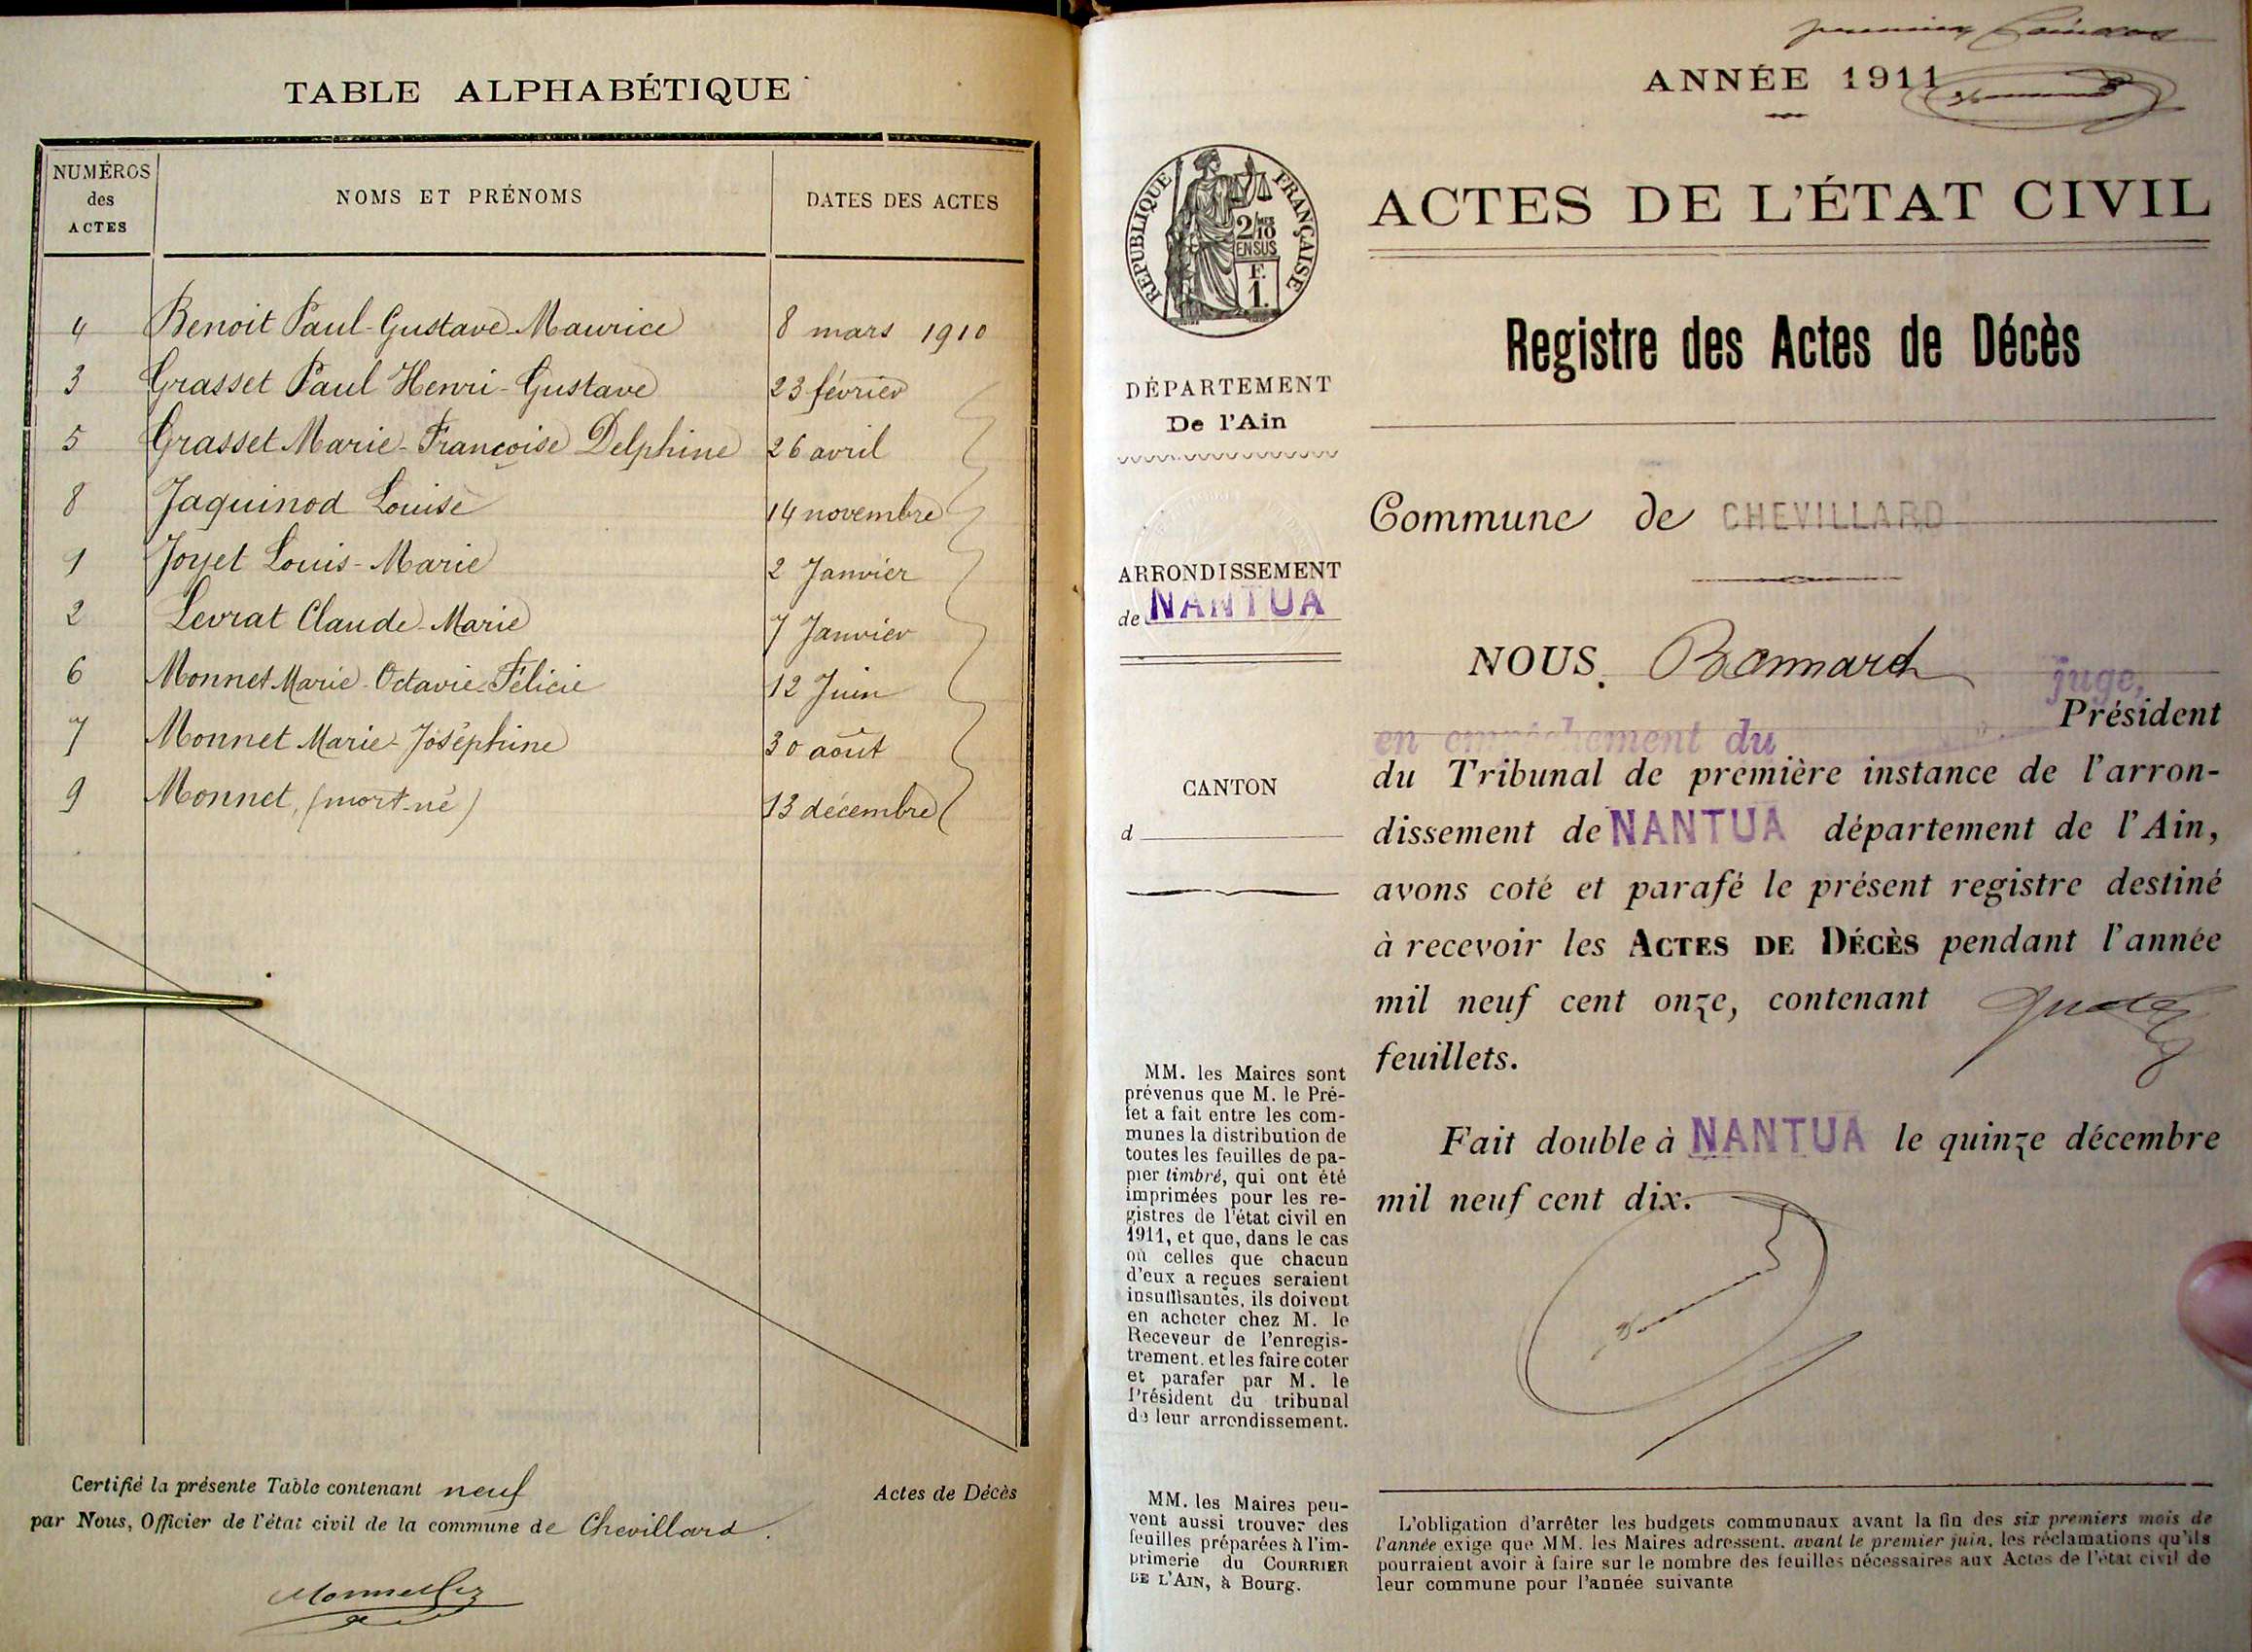 TABLE ALPHABÉTIQUE
NUMÉROS
des
ACTES
NOMS ET PRÉNOMS
DATES DES ACTES
4 Benoit Paul-Gustave-Maurice 8 mars 1910
3 Grasset Paul Henri-Gustave 23 février
5 Grasset Marie-Françoise Delphine 26 avril
8 Jaquinod Louise 14 novembre
1 Joyet Louis-Marie 2 Janvier
2 Levrat Claude-Marie 7 Janvier
6 Monnet Marie-Octavie-Félicie 12 Juin
7 Monnet Marie-Joséphine 30 août
9 Monnet, (mort-né) 13 décembre
Certifié la présente Table contenant neuf Actes de Décès
par Nous, Officier de l'état civil de la commune de Chevillard.
premier
ANNÉE 1911
RÉPUBLIQUE FRANÇAISE
2/10
EN SUS
F.
1.
DÉPARTEMENT
De l'Ain
ARRONDISSEMENT
de NANTUA
CANTON
d
MM. les Maires sont
prévenus que M. le Pré-
fet a fait entre les com-
munes la distribution de
toutes les feuilles de pa-
pier timbré, qui ont été
imprimées pour les re-
gistres de l'état civil en
1911, et que, dans le cas
où celles que chacun
d'eux a reçues seraient
insuffisantes, ils doivent
en acheter chez M. le
Receveur de l'enregis-
trement, et les faire coter
et parafer par M. le
Président du tribunal
de leur arrondissement.
MM. les Maires peu-
vent aussi trouver des
feuilles préparées à l'im-
primerie du COURRIER
DE L'AIN, à Bourg.
ACTES DE L'ÉTAT CIVIL
Registre des Actes de Décès
Commune de CHEVILLARD
NOUS, Bonnard juge,
en empêchement du Président
du Tribunal de première instance de l'arron-
dissement de NANTUA département de l'Ain,
avons coté et parafé le présent registre destiné
à recevoir les ACTES DE DÉCÈS pendant l'année
mil neuf cent onze, contenant
feuillets.
Fait double à NANTUA le quinze décembre
mil neuf cent dix.
L'obligation d'arrêter les budgets communaux avant la fin des six premiers mois de
l'année exige que MM. les Maires adressent, avant le premier juin, les réclamations qu'ils
pourraient avoir à faire sur le nombre des feuilles nécessaires aux Actes de l'état civil de
leur commune pour l'année suivante